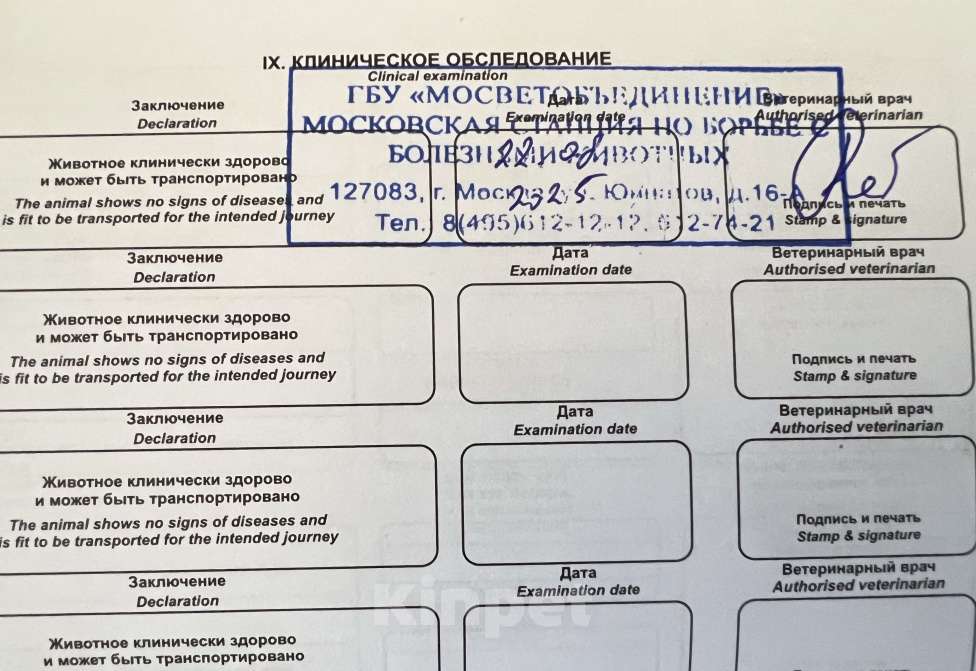 IX. КЛИНИЧЕСКОЕ ОБСЛЕДОВАНИЕ
Clinical examination
ГБУ «МОСВЕТОБЪЕДИНЕНИЕ»
МОСКОВСКАЯ СТАНЦИЯ ПО БОРЬБЕ С
БОЛЕЗНЯМИ ЖИВОТНЫХ
127083, г. Москва, ул. Юннатов, д.16-А
Тел. 8(495)612-12-12, 612-74-21
Заключение
Declaration
Дата
Examination date
Ветеринарный врач
Authorised veterinarian
Животное клинически здорово
и может быть транспортировано
The animal shows no signs of diseases and
is fit to be transported for the intended journey
22 08
2025
Подпись и печать
Stamp & signature
Заключение
Declaration
Дата
Examination date
Ветеринарный врач
Authorised veterinarian
Животное клинически здорово
и может быть транспортировано
The animal shows no signs of diseases and
is fit to be transported for the intended journey
Подпись и печать
Stamp & signature
Заключение
Declaration
Дата
Examination date
Ветеринарный врач
Authorised veterinarian
Животное клинически здорово
и может быть транспортировано
The animal shows no signs of diseases and
is fit to be transported for the intended journey
Подпись и печать
Stamp & signature
Заключение
Declaration
Дата
Examination date
Ветеринарный врач
Authorised veterinarian
Животное клинически здорово
и может быть транспортировано
Подпись и печать
Kinpet